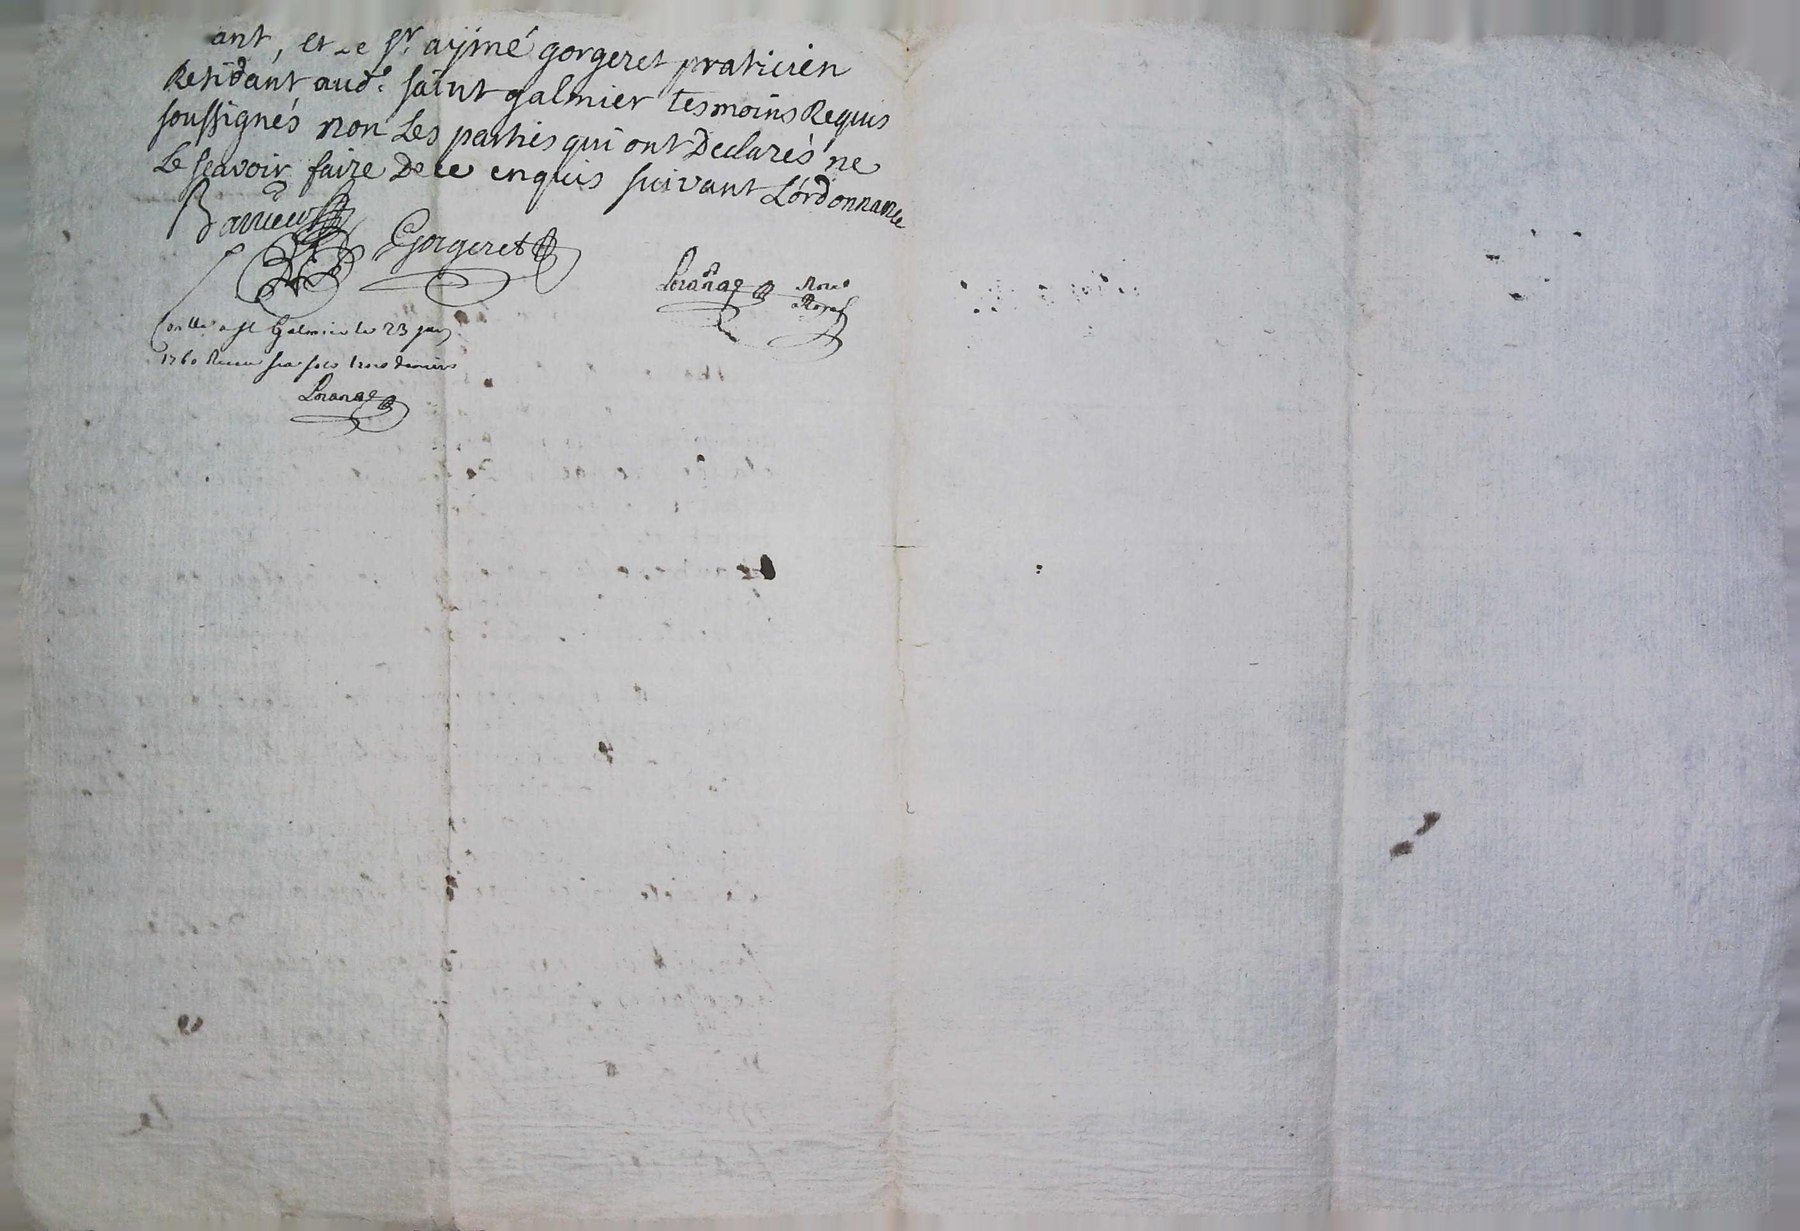 ant, et Le Sr. aymé gorgeret praticien
Residant aud.t saint galmier tesmoins Requis
soussignés non Les parties qui ont Declarés ne
Le scavoir faire De ce enquis suivant L'ordonnance
Gorgeret
Lorange No.re
Royal
Con.lle a St Galmier le 23 jan
1760 Receu sols trois deniers
Lorange